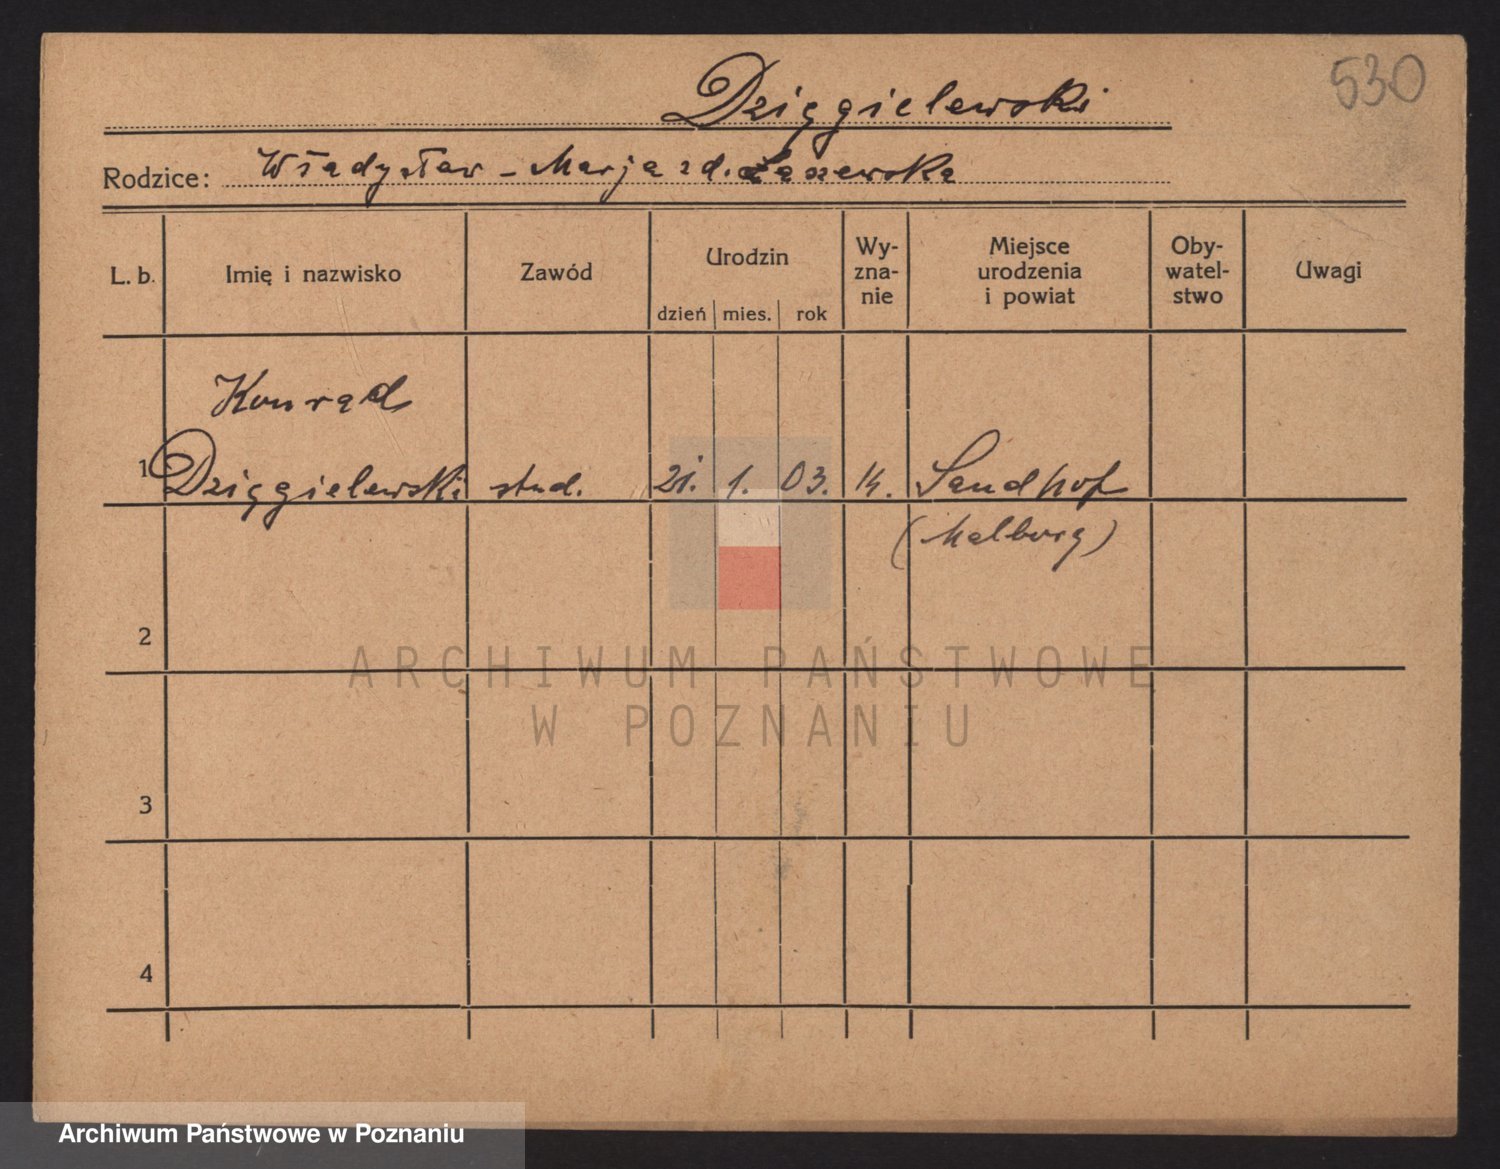 530
Dzięgielewski
Rodzice: Władysław - Marja zd. Łaszewska
L. b. Imię i nazwisko Zawód Urodzin Wy-zna-nie Miejsce urodzenia i powiat Oby-watel-stwo Uwagi
dzień mies. rok
Konrad
1 Dzięgielewski stud. 21. 1. 03. Sandhof
(Malborg)
2
ARCHIWUM PAŃSTWOWE
W POZNANIU
3
4
Archiwum Państwowe w Poznaniu